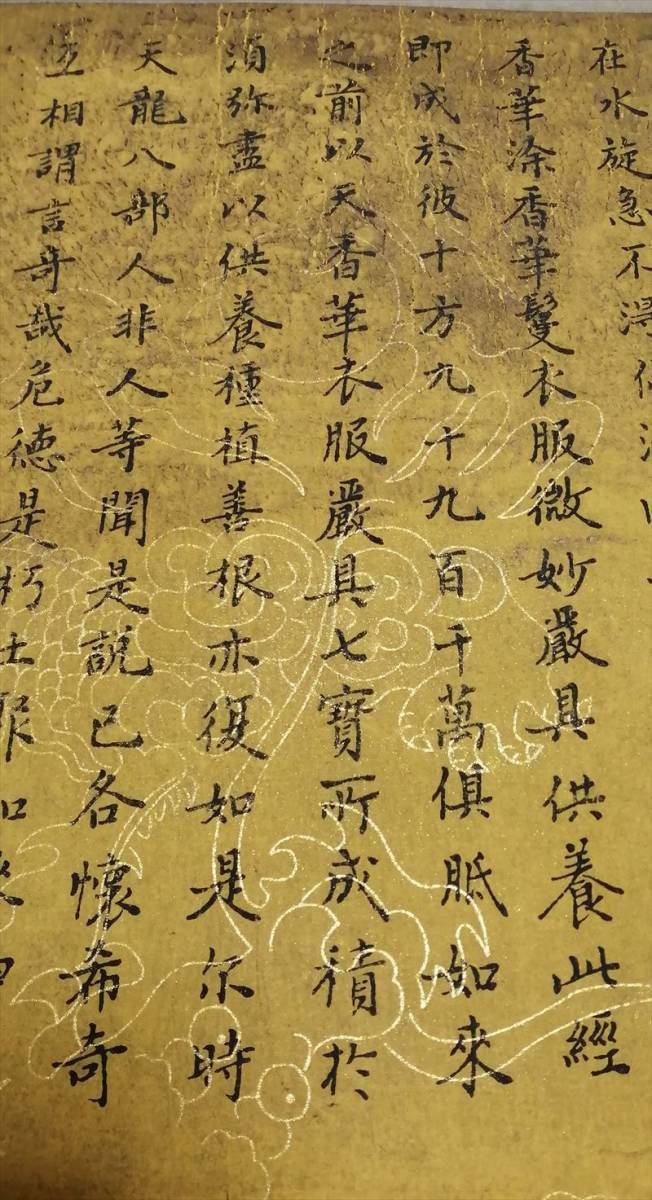 在水旋急不得停
香華涂香華鬘衣服微妙嚴具供養此經
即成於彼十方九十九百千萬俱胝如來
之前以天香華衣服嚴具七寶所成積於
須弥盡以供養種植善根亦復如是尔時
天龍八部人非人等聞是說已各懷希奇
互相謂言奇哉危德是朽土聚如來